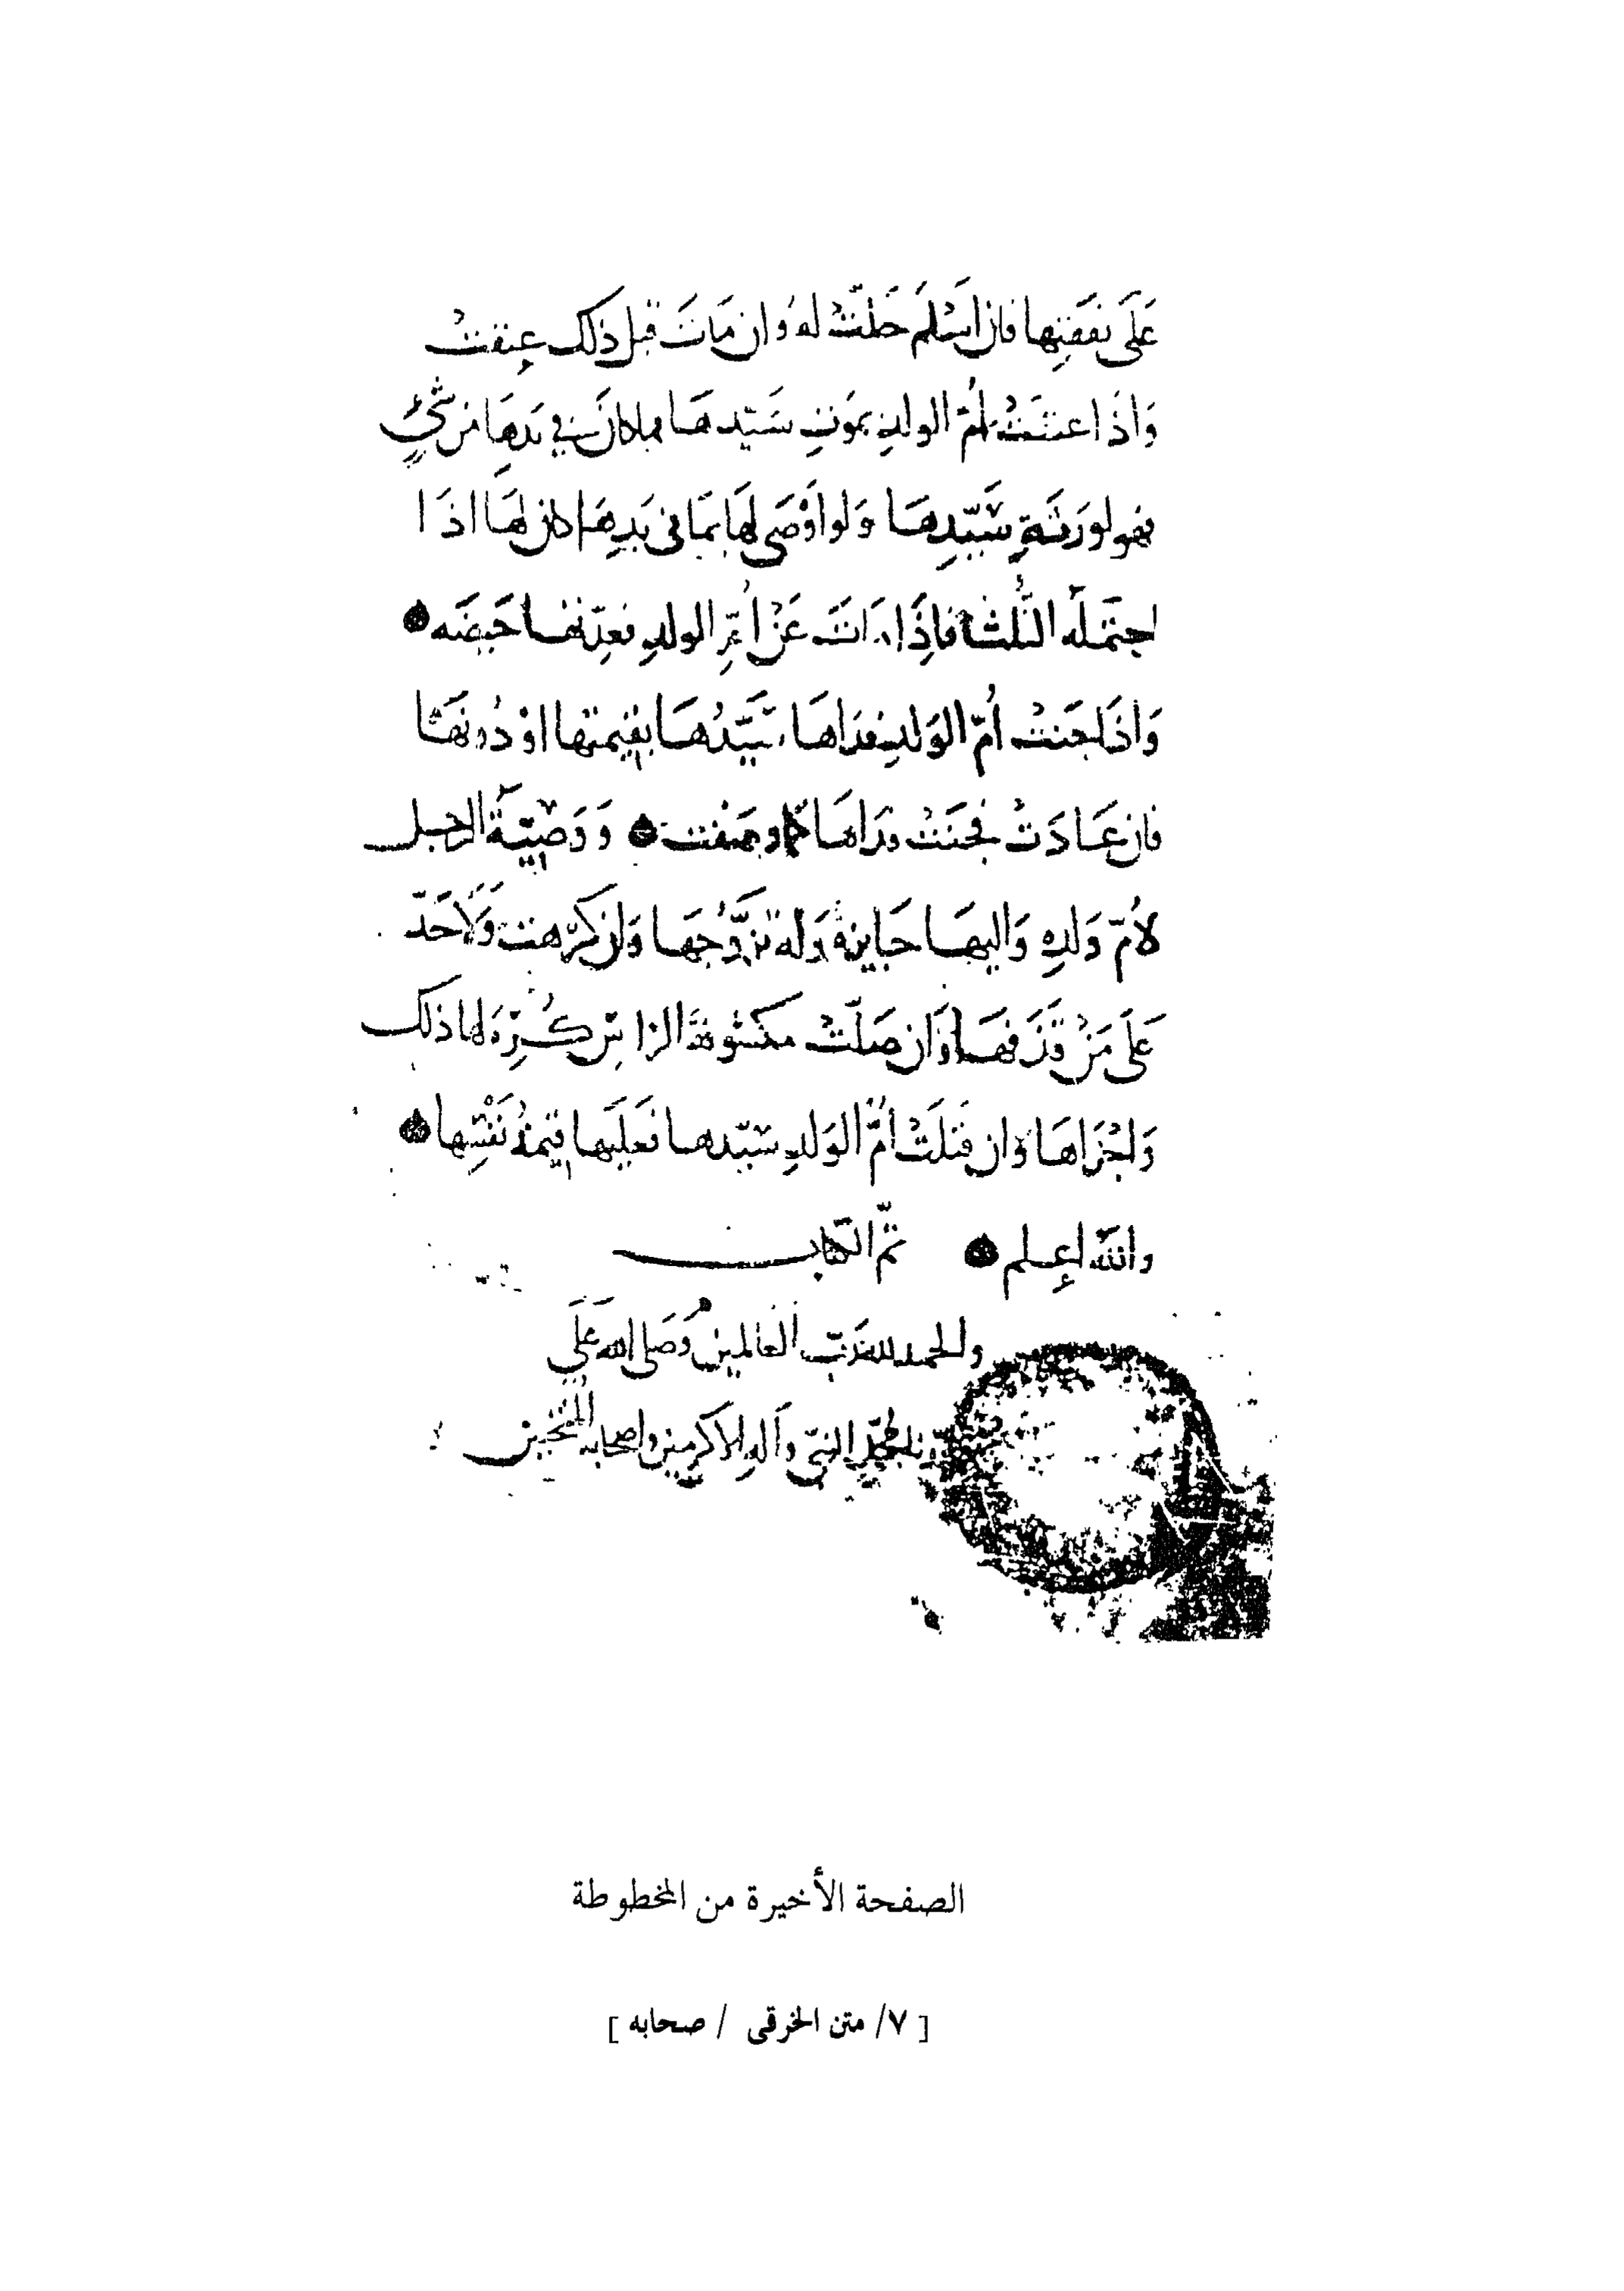 عَلَى نفقتِها فان اسْلَمَ حَلّتْ لهُ وان مَاتَ قبل ذلك عتقتْ
وَاذَا عتقتْ أمّ الولدِ بمَوتِ سَيّدهَا فما كانَ في يَدِهَا من شيءٍ
فهو لورَثةِ سَيّدِهَا وَلو اَوْصَى لهَا بمَا في يَدِهَا كان لهَا اذَا
احتمَلَه الثّلث فاِذَا مَاتَ عَنْ اُمّ الولدِ فعِدّتها حَيضَه
وَاذَا جنتْ اُمّ الوَلدِ فدَاهَا سَيّدُهَا بقيمتها اوْ دُونهَا
فان عَادَتْ فجَنَتْ فدَاهَا كما وصفت وَوَصِيّةُ الرجل
لاُمّ وَلدِه وَاليهَا جَايزة وَله تزوُّجهَا وَان كرهت وَلَا حَدّ
عَلَى مَنْ قذَفهَا وَان صَلّتْ مكشوفةَ الرّاسِ كُرِهَ لها ذلك
وَاجْزَاهَا وَان قتلَتْ أمُّ الوَلدِ سَيّدهَا فعَلَيها قيمةُ نَفْسِها
والله اعلم تمّ الكتاب
والحمد لله رَبّ العالمين وَصَلى الله عَلَى
محمّد النبيّ وآله الاكرمين واصحابه المنتجبين
الصفحة الأخيرة من المخطوطة
[ ٧/ متن الخرقى / صحابه ]